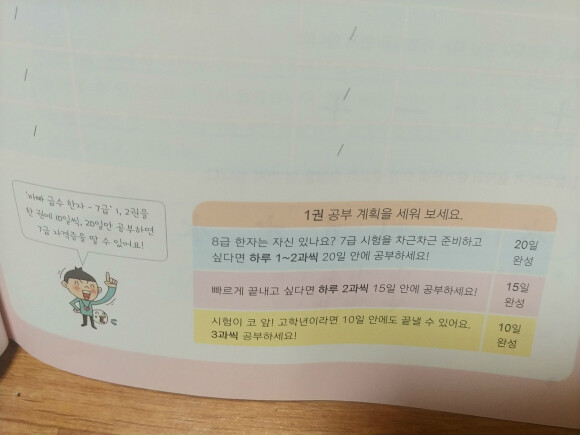 '바빠 급수 한자 - 7급' 1, 2권을
한 권에 10일씩, 20일만 공부하면
7급 자격증을 딸 수 있어요!
1권 공부 계획을 세워 보세요.
8급 한자는 자신 있나요? 7급 시험을 차근차근 준비하고
싶다면 하루 1~2과씩 20일 안에 공부하세요!
20일
완성
빠르게 끝내고 싶다면 하루 2과씩 15일 안에 공부하세요!
15일
완성
시험이 코 앞! 고학년이라면 10일 안에도 끝낼 수 있어요.
3과씩 공부하세요!
10일
완성